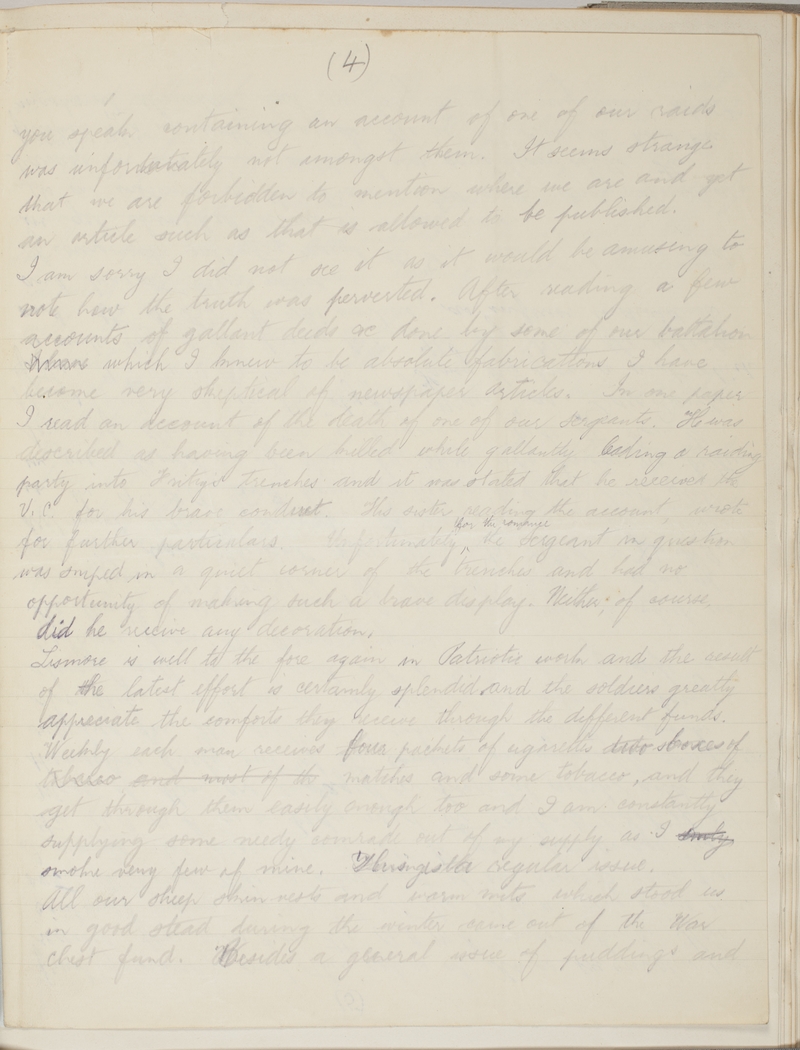 (4)
you speak containing an account of one of our raids
was unfortunately not amongst them. It seems strange
that we are forbidden to mention where we are and yet
an article such as that is allowed to be published.
I am sorry I did not see it as it would be amusing to
note how the truth was perverted. After reading a few
accounts of gallant deeds &c done by some of our battalion
which I knew to be absolute fabrications I have
become very skeptical of newspaper articles. In one paper
I read an account of the death of one of our sergeants. He was
described as having been killed while gallantly leading a raiding
party into Fritz's trenches and it was stated that he received the
V.C. for his brave conduct. His sister, reading the account, wrote
for the romance
for further particulars. Unfortunately, the sergeant in question
was sniped in a quiet corner of the trenches and had no
opportunity of making such a brave display. Neither, of course,
did he receive any decoration.
Lismore is well to the fore again in Patriotic work and the result
of the latest effort is certainly splendid and the soldiers greatly
appreciate the comforts they receive through the different funds.
Weekly each man receives four packets of cigarettes two boxes of
tobacco and most of th matches and some tobacco, and they
get through them easily enough too and I am constantly
supplying some needy comrade out of my supply as I only
smoke very few of mine. This is a regular issue.
All our sheep skin vests and warm mits which stood us
in good stead during the winter came out of the War
chest fund. Besides a general issue of puddings and